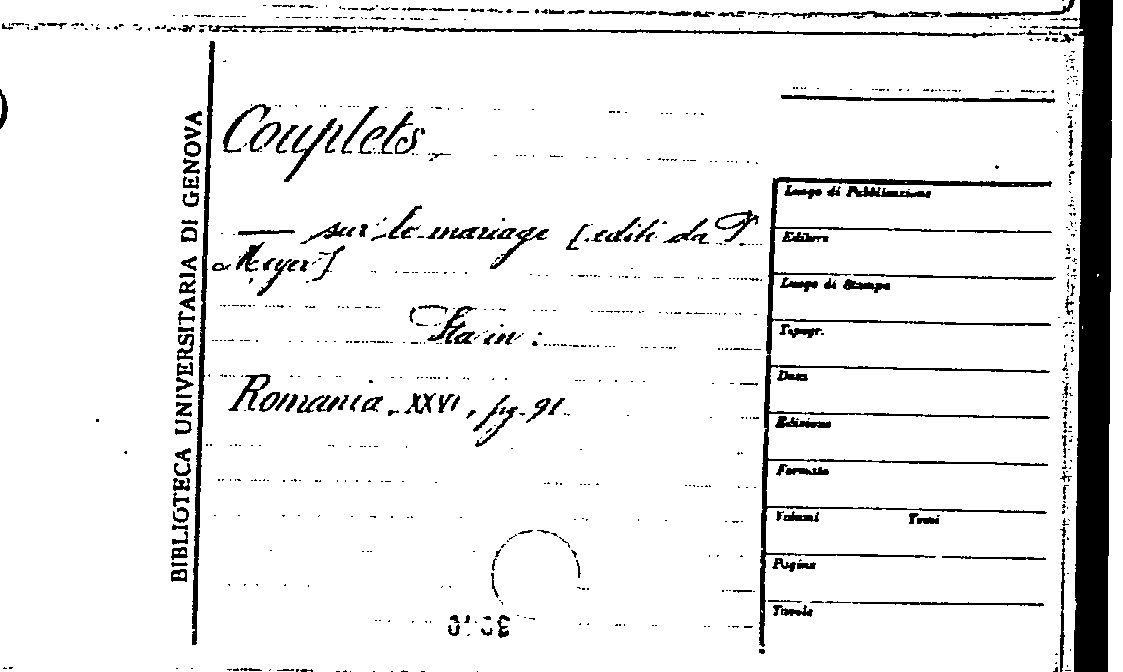 BIBLIOTECA UNIVERSITARIA DI GENOVA
Couplets.
— sur le mariage [editi da P.
Meyer]
Sta in:
Romania. XXVI, pg. 91.
Luogo di Pubblicazione
Editore
Luogo di Stampa
Tipogr.
Data
Edizione
Formato
Volumi Tomi
Pagine
Tavole